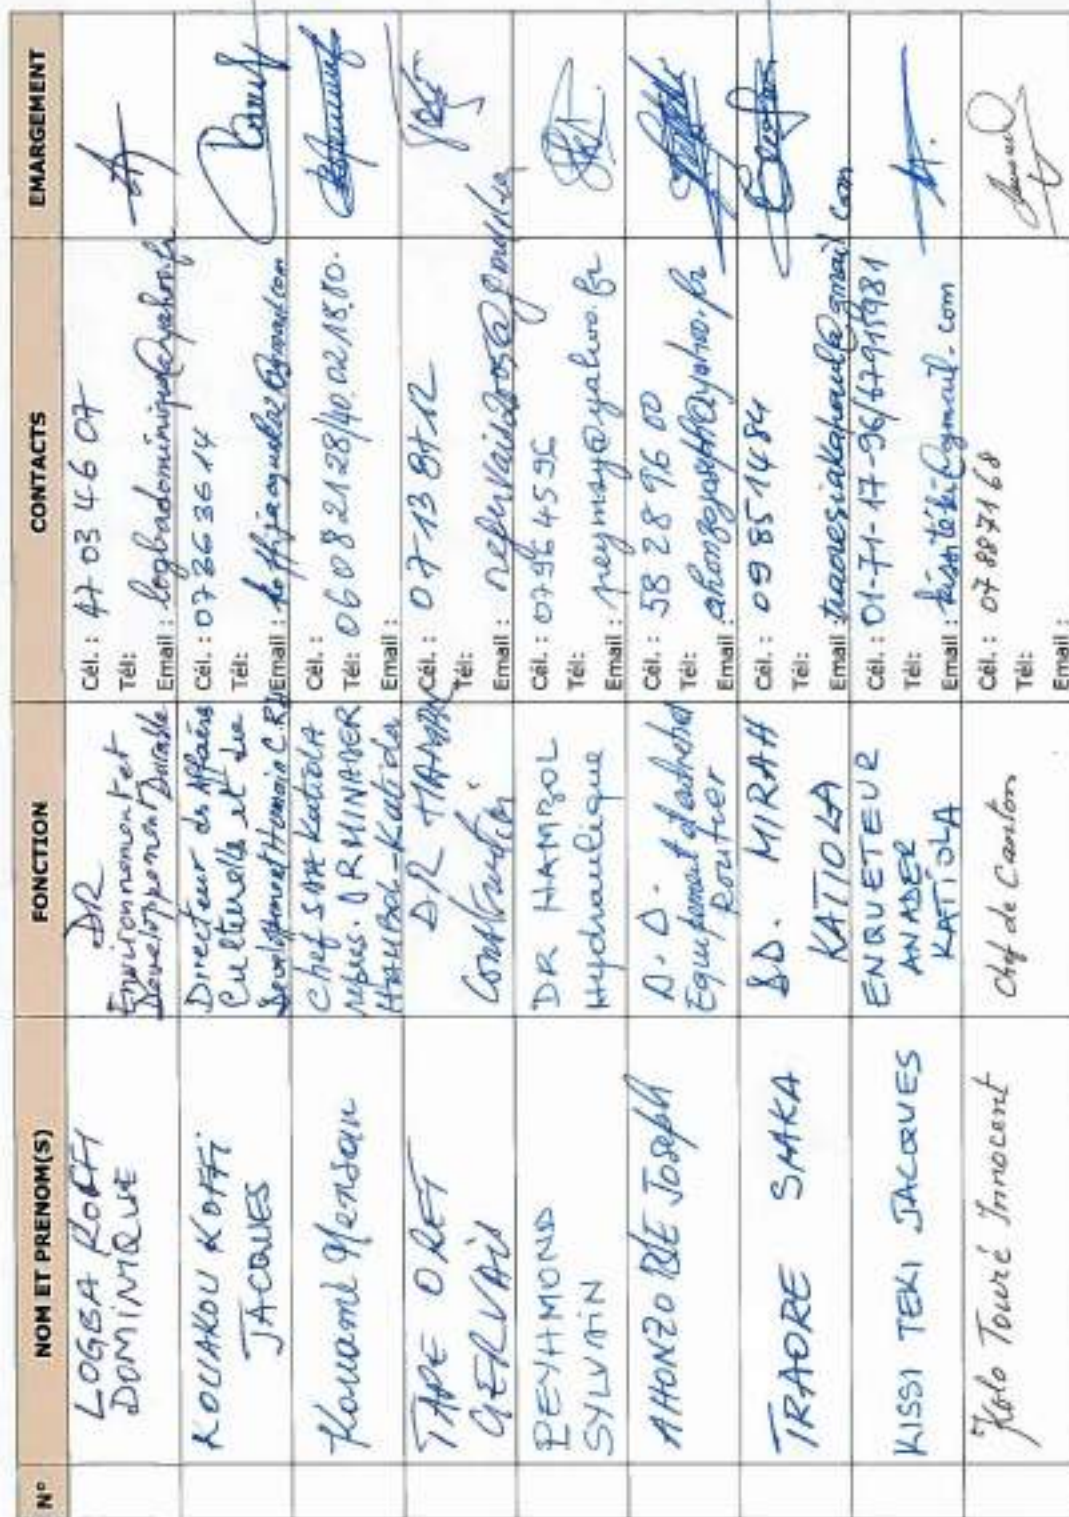 N°
NOM ET PRENOM(S)
FONCTION
CONTACTS
EMARGEMENT
LOGBA KOFFI
DOMINIQUE
DR
Environnement et
Développement Durable
Cél. : 47 03 46 07
Tél:
Email : logbadominique@yahoo.fr
KOUAKOU KOFFI
JACQUES
Directeur des Affaires
Culturelles et du
Développement Humain C.R.H
Cél. : 07 36 36 14
Tél:
Email :
Kouamé Mensan
Chef SAA Katiola
repres. DR MINADER
Hambol-Katiola
Cél. :
Tél: 06 08 21 28/40.02.18.80.
Email :
TAPE ORET
GERVAIS
DR HAMBOL
Construction
Cél. : 07 13 81 12
Tél:
Email :
PEYHMOND
SYLVAIN
DR HAMBOL
Hydraulique
Cél. : 07 96 45 96
Tél:
Email : peymsy@yahoo.fr
AHONZO BLE Joseph
D.D.
Equipement et entretien
Routier
Cél. : 58 28 96 00
Tél:
Email : ahonzojoseph@yahoo.fr
TRAORE SIAKA
SD. MIRAH
KATIOLA
Cél. : 09 85 14 84
Tél:
Email : traoresiakapaul@gmail.com
KISSI TEKI JACQUES
ENQUETEUR
ANADER
KATIOLA
Cél. : 01-71-17-96/67915981
Tél:
Email : kissitéki@gmail.com
Kolo Touré Innocent
Chef de Canton
Cél. : 07 88 71 68
Tél:
Email :